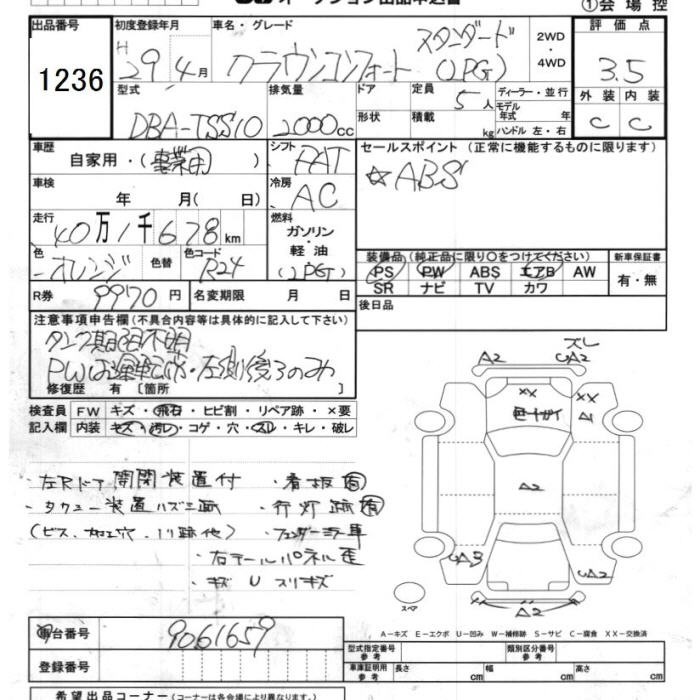 オークション出品申込書
①会場控
出品番号 初度登録年月 車名・グレード 2WD・4WD 評価点
1236 H 29年4月 クラウンコンフォート スタンダード (LPG) 3.5
型式 排気量 ドア 定員 5人 ディーラー・並行 外装 内装
DBA-TSS10 2000cc 形状 積載 kg モデル年式 年 ハンドル 左・右 C C
車歴 自家用・(事業用) シフト PAT セールスポイント (正常に機能するものに限ります)
☆ABS
車検 年 月( 日) 冷房 AC
走行 40万1千678km 燃料 ガソリン・軽油 (LPG)
色 オレンジ 色替 色コード R24
装備品 (純正品に限り○をつけてください) 新車保証書
PS PW ABS エアB AW 有・無
SR ナビ TV カワ
R券 9970円 名変期限 月 日 後日品
注意事項申告欄 (不具合内容等は具体的に記入して下さい)
タンク期限不明
PWは運転席・左側後ろのみ
修復歴 有 [箇所 ]
検査員 FW キズ・飛石・ヒビ割・リペア跡・×要
記入欄 内装 キズ・汚れ・コゲ・穴・スレ・キレ・破レ
・左Rドア開閉装置付 ・看板面
・タクシー装置ハズシ面 ・行灯跡面
(ビス、加工穴、ノリ跡他) ・フェンダーミラー車
・右テールパネル歪
・キズ U スリキズ
ズレ
A2 UA2
XX XX
色十ガイ A1
A2
UA3 UA2
A2
スペア
A-キズ E-エクボ U-凹み W-補修跡 S-サビ C-腐食 XX-交換済
車台番号 9061659
登録番号
型式指定番号 参考 類別区分番号 参考
車庫証明用 参考 長さ cm 幅 cm 高さ cm
希望出品コーナー (コーナーは各会場により異なります)